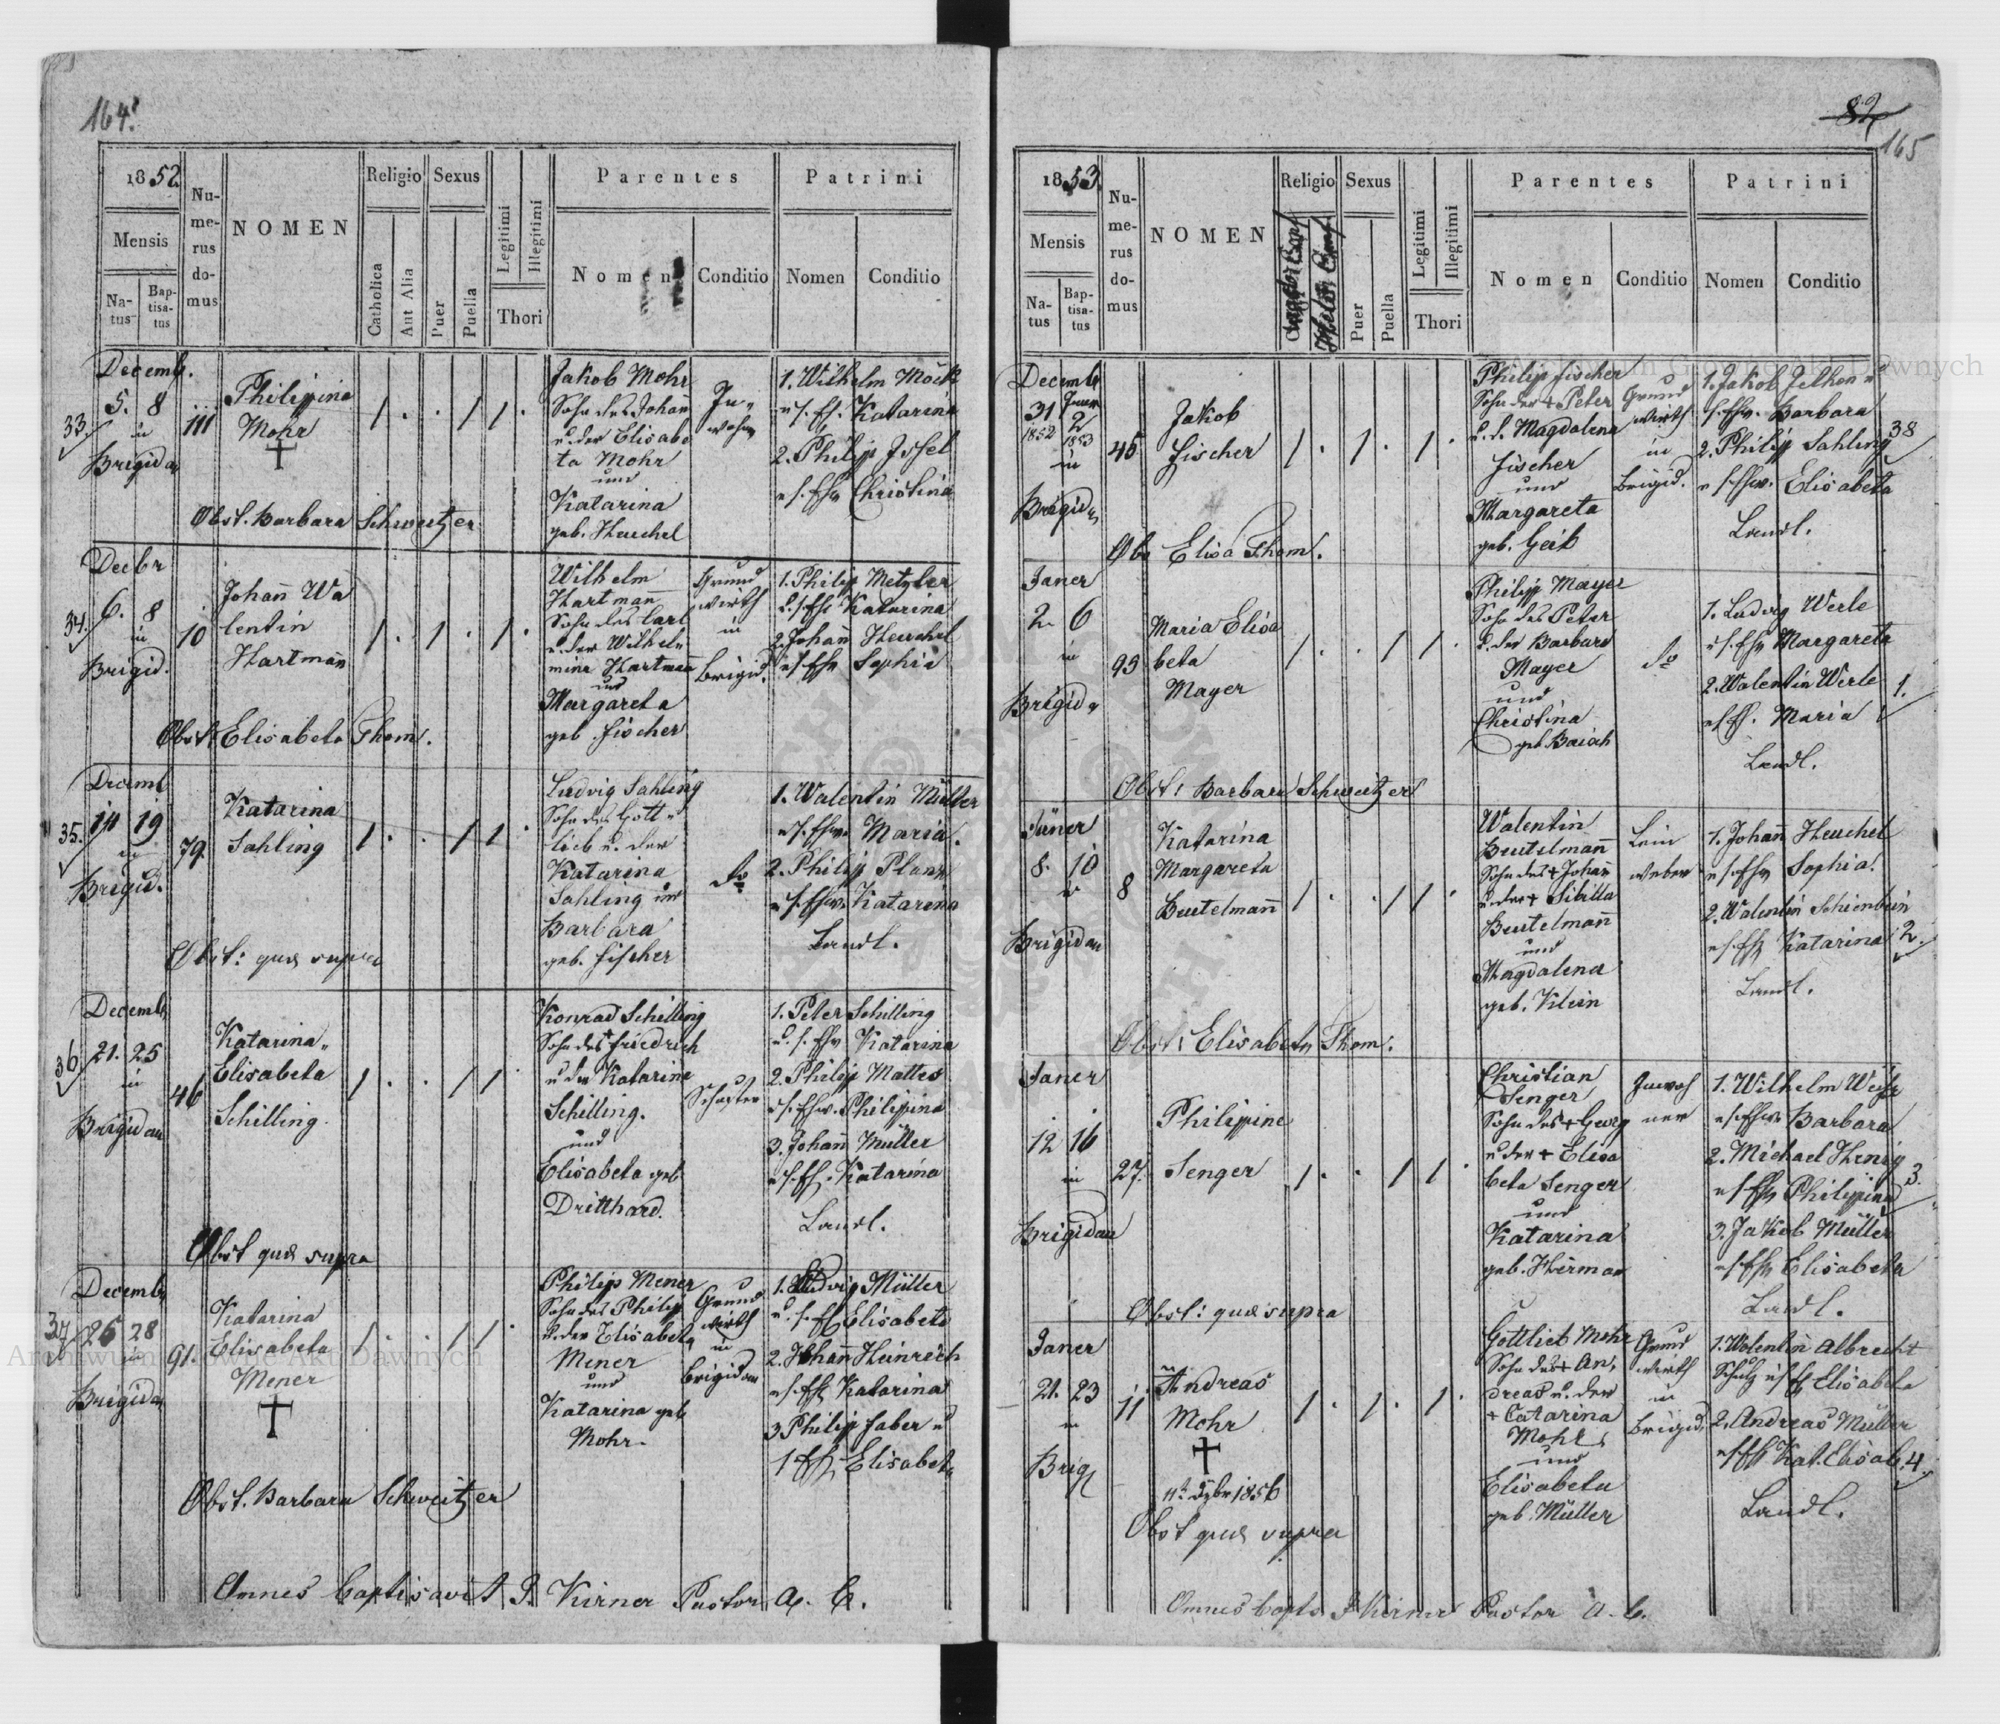 164.
1852
Mensis
Natus
Baptisatus
Numerus domus
NOMEN
Religio
Catholica
Aut Alia
Sexus
Puer
Puella
Legitimi
Illegitimi
Thori
Parentes
Nomen
Conditio
Patrini
Nomen
Conditio
Decemb.
33.
5. 8
in
Brigidau
111
Philippina
Mohr
†
Jakob Mohr
Sohn des Johañ
u. der Elisabe
ta Mohr
und
Katarina
geb. Heuchel
In-
wohner
1. Wilhelm Möck
u s. Eh. Katarina
2. Philip Issel
u s. Ehfr Christina
Obst. Barbara Schweitzer
Decbr
34.
6. 8
in
Brigid.
10
Johañ Va
lentin
Hartmañ
Wilhelm
Hartmañ
Sohn des Carl
u. der Wilhel-
mina Hartmañ
und
Margareta
geb Fischer
Grund
wirth
in
Brigid.
1. Philip Metzler
u. s. Ehfr Katarina
2. Johañ Heuchel
u s Ehfr Sophia
Obst. Elisabeta Thom.
Decemb
35.
14 19
in
Brigid.
79.
Katarina
Sahling
Ludvig Sahling
Sohn des Gott-
lieb u. der
Katarina
Sahling und
Barbara
geb. Fischer
do
1. Valentin Müller
u s. Ehfr. Maria.
2. Philip Planz
u s. Ehfr. Katarina
Landl.
Obst: quae supra
Decemb
36
21. 25
in
Brigidau
46
Katarina-
Elisabeta
Schilling.
Konrad Schilling
Sohn des † Friedrich
u der Katarina
Schilling.
und
Elisabeta geb
Dritthard.
Schuster
1. Peter Schilling
u. s. Ehfr Katarina
2. Philip Mattes
u s. Ehfr. Philippina
3. Johañ Müller
u s. Eh. Katarina
Landl.
Obst quae supra
Decemb
37
26 28
in
Brigidau
91.
Katarina
Elisabeta
Mener
†
Philip Mener
Sohn des Philip
u. der Elisabeta
Mener
und
Katarina geb
Mohr.
Grund
wirth
in
Brigidau
1. Ludvig Müller
u. s. Eh Elisabeta
2. Johañ Heinrich
u s. Eh Katarina
3 Philip Faber u
s Eh. Elisabeta
Obst. Barbara Schweitzer
Omnes baptisavit J. Kirner Pastor A. C.
82
165
1853
Mensis
Natus
Baptisatus
Numerus domus
NOMEN
Religio
Sexus
Puer
Puella
Legitimi
Illegitimi
Thori
Parentes
Nomen
Conditio
Patrini
Nomen
Conditio
Decemb
31 Janer
2
1852 1853
in
Brigidau
45
Jakob
Fischer
Philip Fischer
Sohn des † Peter
u. d. Magdalena
Fischer
und
Margareta
geb. Geib
Grund
wirth
in
Brigid.
s. Ehfr. Barbara
2. Philip Sahling
u s. Ehfr. Elisabeta
Landl.
38
Obs Elisa Thom.
Janer
2. 6
in
Brigid.
95
Maria Elisa
beta
Mayer
Philip Mayer
Sohn des Peter
u. der Barbara
Mayer
und
Christina
geb Baisch
do
1. Ludvig Werle
u s. Ehfr Margareta
2. Valentin Werle
u s Eh. Maria
Landl.
1.
Obst: Barbara Schweitzer
Jäner
8. 10
in
Brigidau
8
Katarina
Margareta
Beutelmañ
Valentin
Beutelmañ
Sohn des † Johañ
u. der † Sibilla
Beutelmañ
und
Magdalena
geb. Klein
Lein
weber
1. Johañ Heuchel
u s. Ehfr Sophia.
2. Valentin Schienbein
u s. Eh Katarina
Landl.
2.
Obst: Elisabeta Thom.
Janer
12 16
in
Brigidau
27.
Philippine
Senger
Christian
Senger
Sohn des † Georg
u der † Elisa
beta Senger
und
Katarina
geb. Herman
Inwoh
ner
1. Wilhelm
u s. Ehfr Barbara
2. Michael Henig
u s. Eh Philippina
3. Jakob Müller
u s. Eh Elisabeta
Landl.
3.
Obst: quae supra
Janer
21. 23
in
Brig
11
Andreas
Mohr
†
11t Dzbr 1856
Gottlieb Mohr
Sohn des † An-
dreas u. der
† Catarina
Mohr
und
Elisabeta
geb. Müller
Grund
wirth
in
Brigid.
1. Valentin Albrecht
Schulz u s Eh Elisabeta
2. Andreas Müller
u s Eh Kat. Elisab.
Landl.
4
Obst quae supra
Omnes bapt. J Kirner Pastor A. C.
Archiwum Główne Akt Dawnych
Archiwum Główne Akt Dawnych